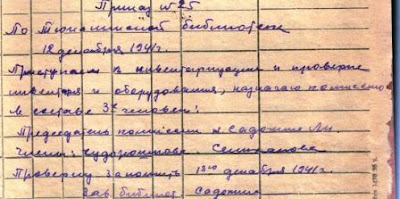 Приказ № 25
По библиотеке
12 декабря 1941 г.
Приступая к инвентаризации и проверке
инвентаря и оборудования, назначаю комиссию
в составе 3х человек:
Председатель комиссии т. Садохина
Члены: Селиванова
Проверку закончить 13го декабря 1941 г.
Зав. библиот. Садохина